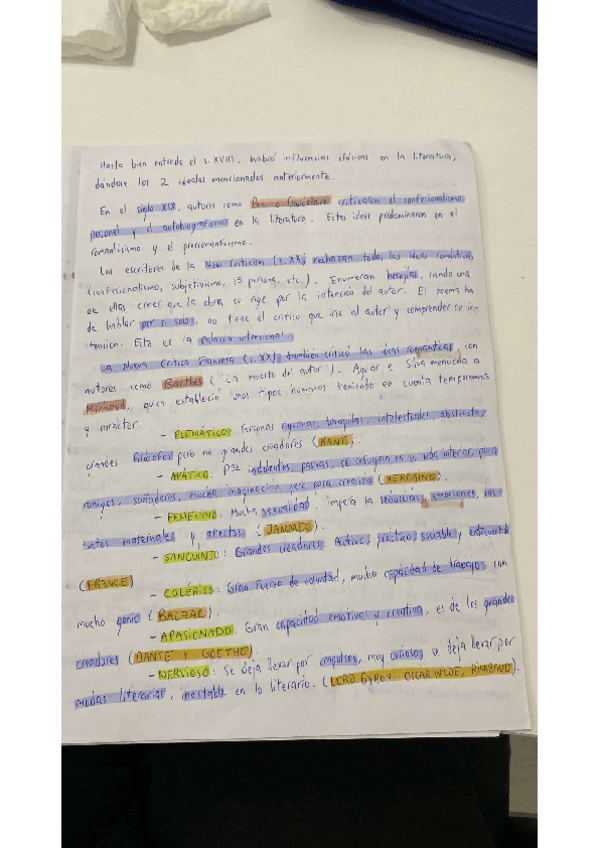 Hasta bien entrado el s. XVIII, habrá influencias clásicas en la literatura,
dándose los 2 ideales mencionados anteriormente.
En el siglo XIX, autores como Poe o Baudelaire criticaron el confesionalismo
personal y el autobiografismo en la literatura. Estas ideas predominaron en el
romanticismo y el prerromanticismo.
Los escritores de la New Criticism (s. XX) rechazan todas las ideas románticas
(confesionalismo, subjetivismo, 1ª persona, etc.). Enumeran herejías, siendo una
de ellas creer que la obra se rige por la intención del autor. El poema ha
de hablar por si solo, no tiene el crítico que irse al autor y comprender su in-
tención. Esta es la falacia intencional.
La Nueva Crítica Francesa (s. XX) también criticó las ideas románticas, con
autores como Barthes ("La muerte del autor"). Aguiar e Silva menciona a
quien estableció unos tipos humanos teniendo en cuenta temperamento
y carácter.
- FLEMÁTICOS: Personas tranquilas, intelectuales, abstractas,
grandes filósofos pero no grandes creadores (KANT).
- APÁTICO: indolentes, pasivas, se refugian en su vida interior, poco
amigos, soñadores, mucha imaginación pero para creativa (VERLAINE).
- FEMENINO: Mucha sexualidad, impera la seducción, emociones, ins
tintos maternales y afectos (JAMMES).
- SANGUINEO: Grandes creadores. Activo, práctico, sociable y extrovertido
(FRANCE)
- COLÉRICO: Gran fuerza de voluntad, mucha capacidad de trabajo, son
mucho genio (BALZAC).
- APASIONADO: Gran capacidad emotiva y creativa, es de los grandes
creadores (DANTE Y GOETHE).
- NERVIOSO: Se deja llevar por impulsos, muy curioso, se deja llevar por
modas literarias, inestable en lo literario. (LORD BYRON, OSCAR WILDE, RIMBAUD).